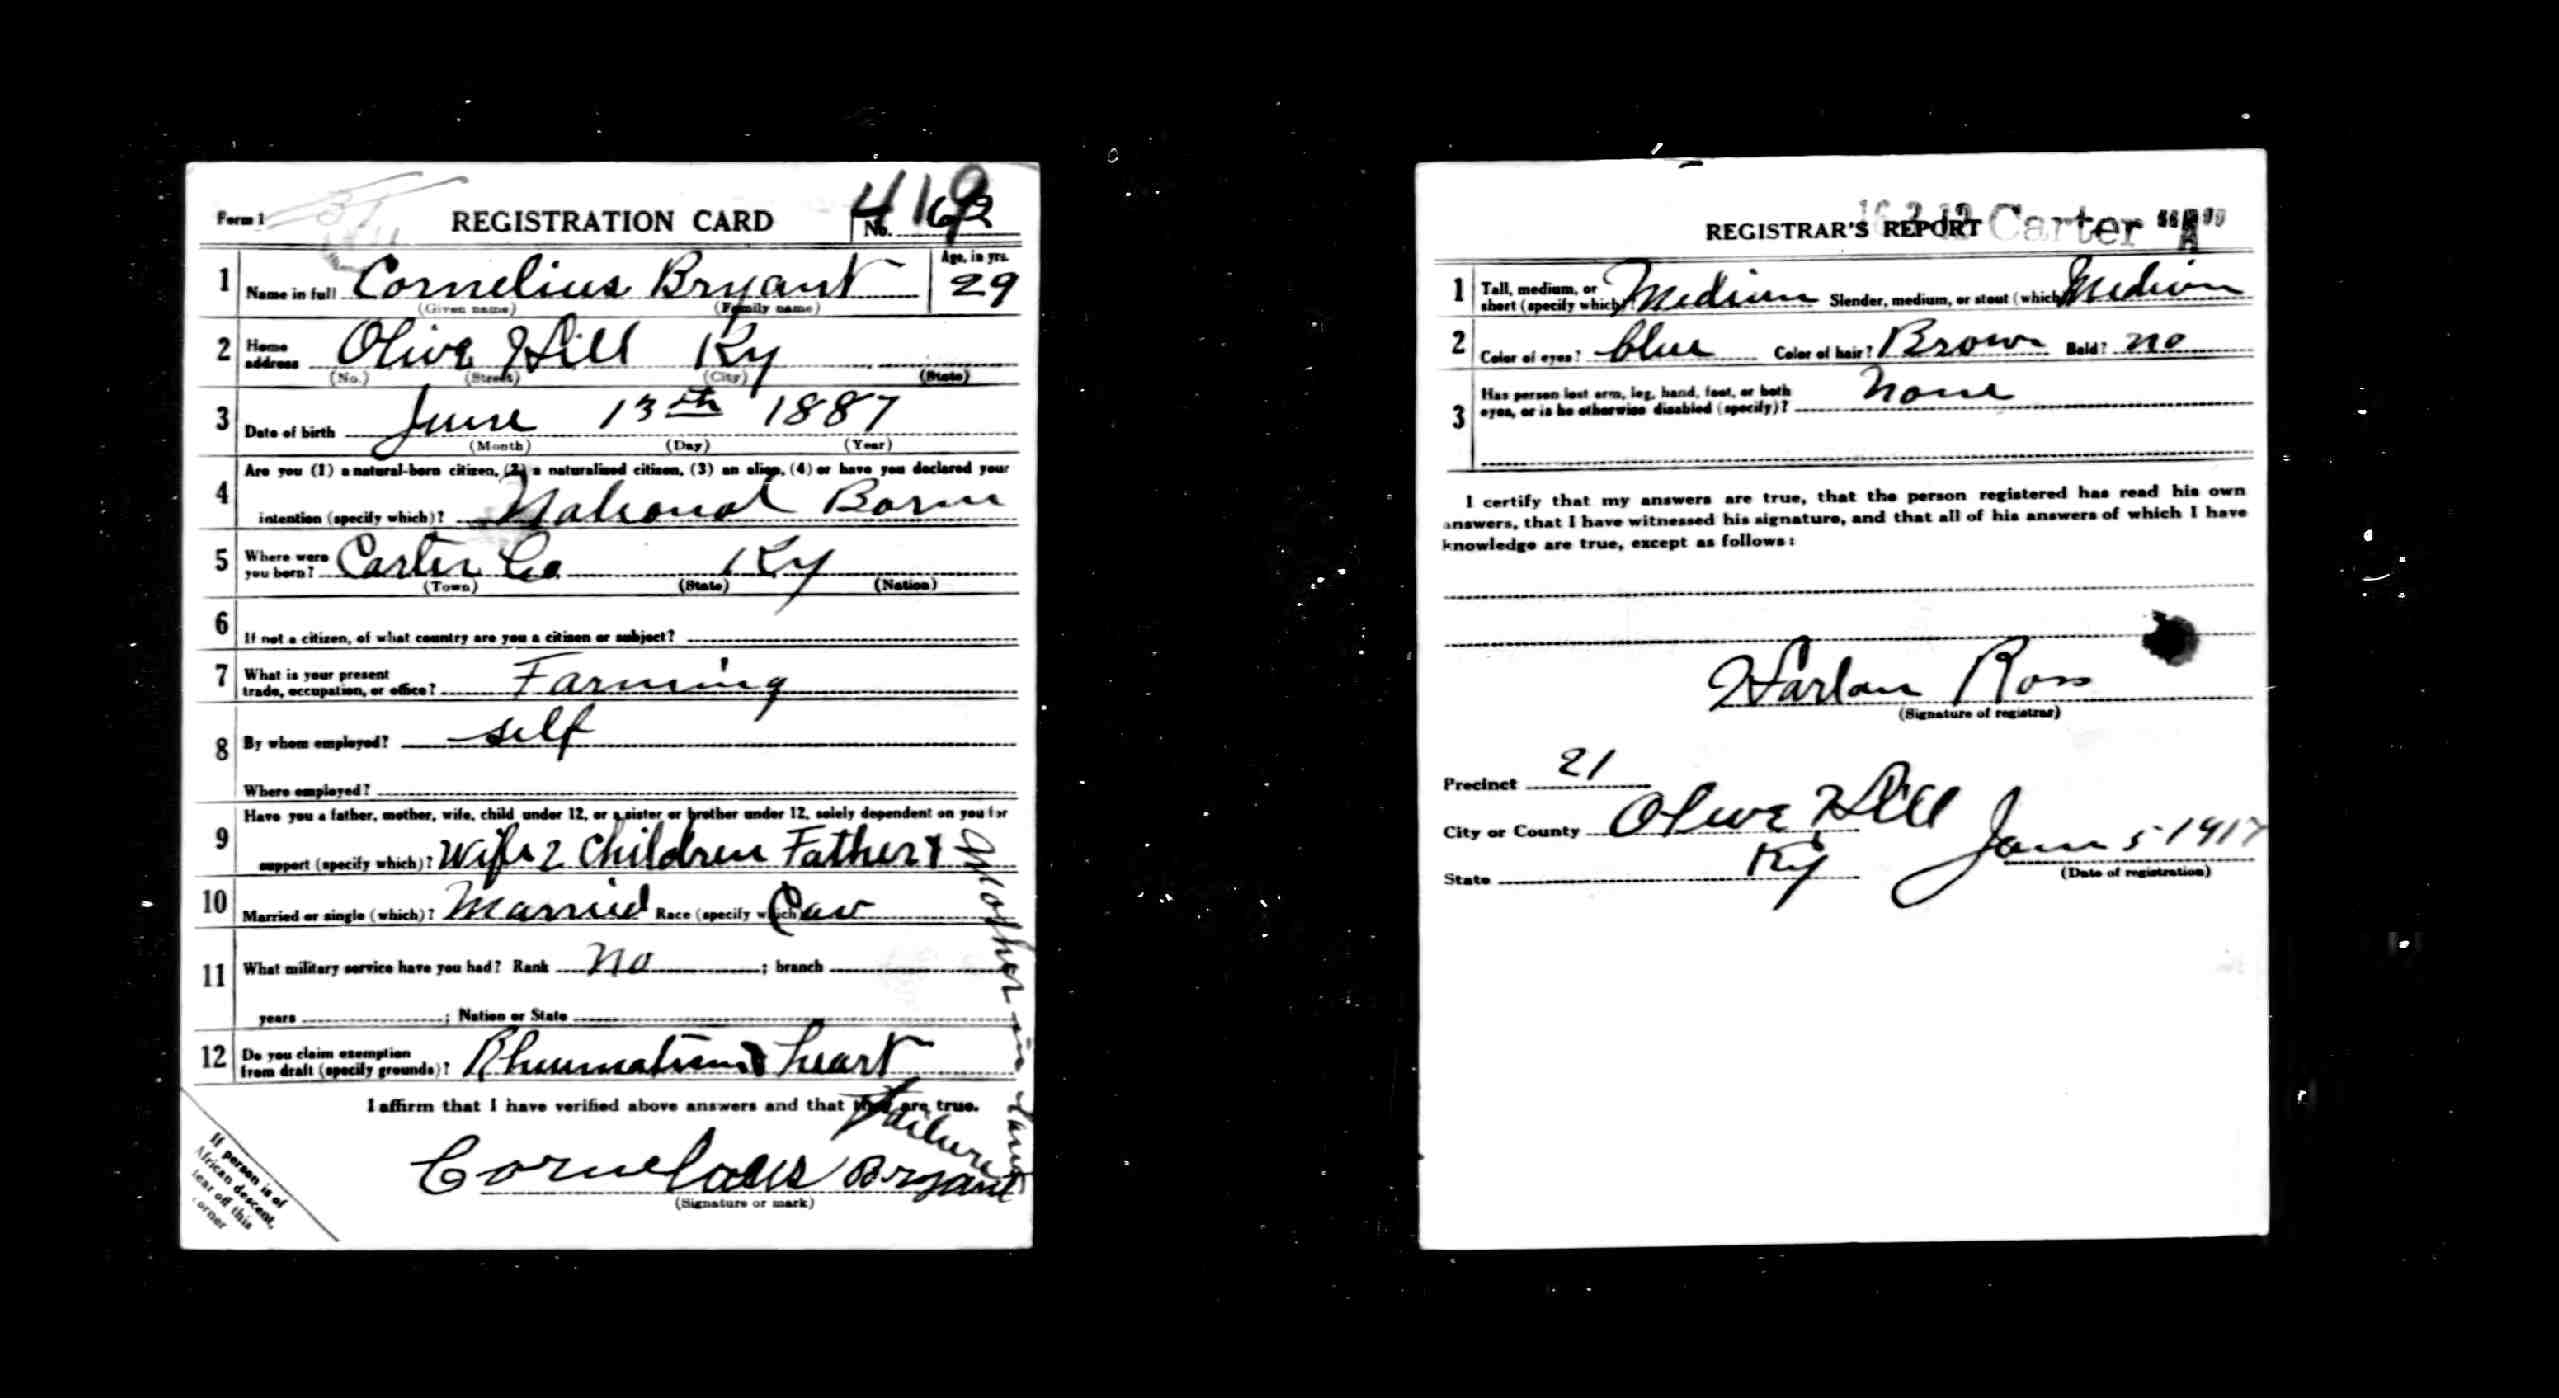 Form 1
REGISTRATION CARD
No. 62
419
1 Name in full Cornelius Bryant
(Given name) (Family name)
Age, in yrs.
29
2 Home address Olive Hill Ky
(No.) (Street) (City) (State)
3 Date of birth June 13th 1887
(Month) (Day) (Year)
4 Are you (1) a natural-born citizen, (2) a naturalized citizen, (3) an alien, (4) or have you declared your
intention (specify which)? National Born
5 Where were you born? Carter Co Ky
(Town) (State) (Nation)
6 If not a citizen, of what country are you a citizen or subject?
7 What is your present
trade, occupation, or office? Farming
8 By whom employed? self
Where employed?
9 Have you a father, mother, wife, child under 12, or a sister or brother under 12, solely dependent on you for
support (specify which)? Wife 2 Children Father &
Mother in Law
10 Married or single (which)? Married Race (specify which) Cav
11 What military service have you had? Rank No ; branch
years ; Nation or State
12 Do you claim exemption
from draft (specify grounds)? Rheumatism & heart
failure
I affirm that I have verified above answers and that they are true.
Cornelous Bryant
(Signature or mark)
If person is of
African descent,
tear off this
corner
REGISTRAR'S REPORT
Carter "A"
1 Tall, medium, or
short (specify which)? Medium Slender, medium, or stout (which)? Medium
2 Color of eyes? blue Color of hair? Brown Bald? no
3 Has person lost arm, leg, hand, foot, or both
eyes, or is he otherwise disabled (specify)? None
I certify that my answers are true, that the person registered has read his own
answers, that I have witnessed his signature, and that all of his answers of which I have
knowledge are true, except as follows:
Harlan Ross
(Signature of registrar)
Precinct 21
City or County Olive Hill
State Ky
June 5 1917
(Date of registration)